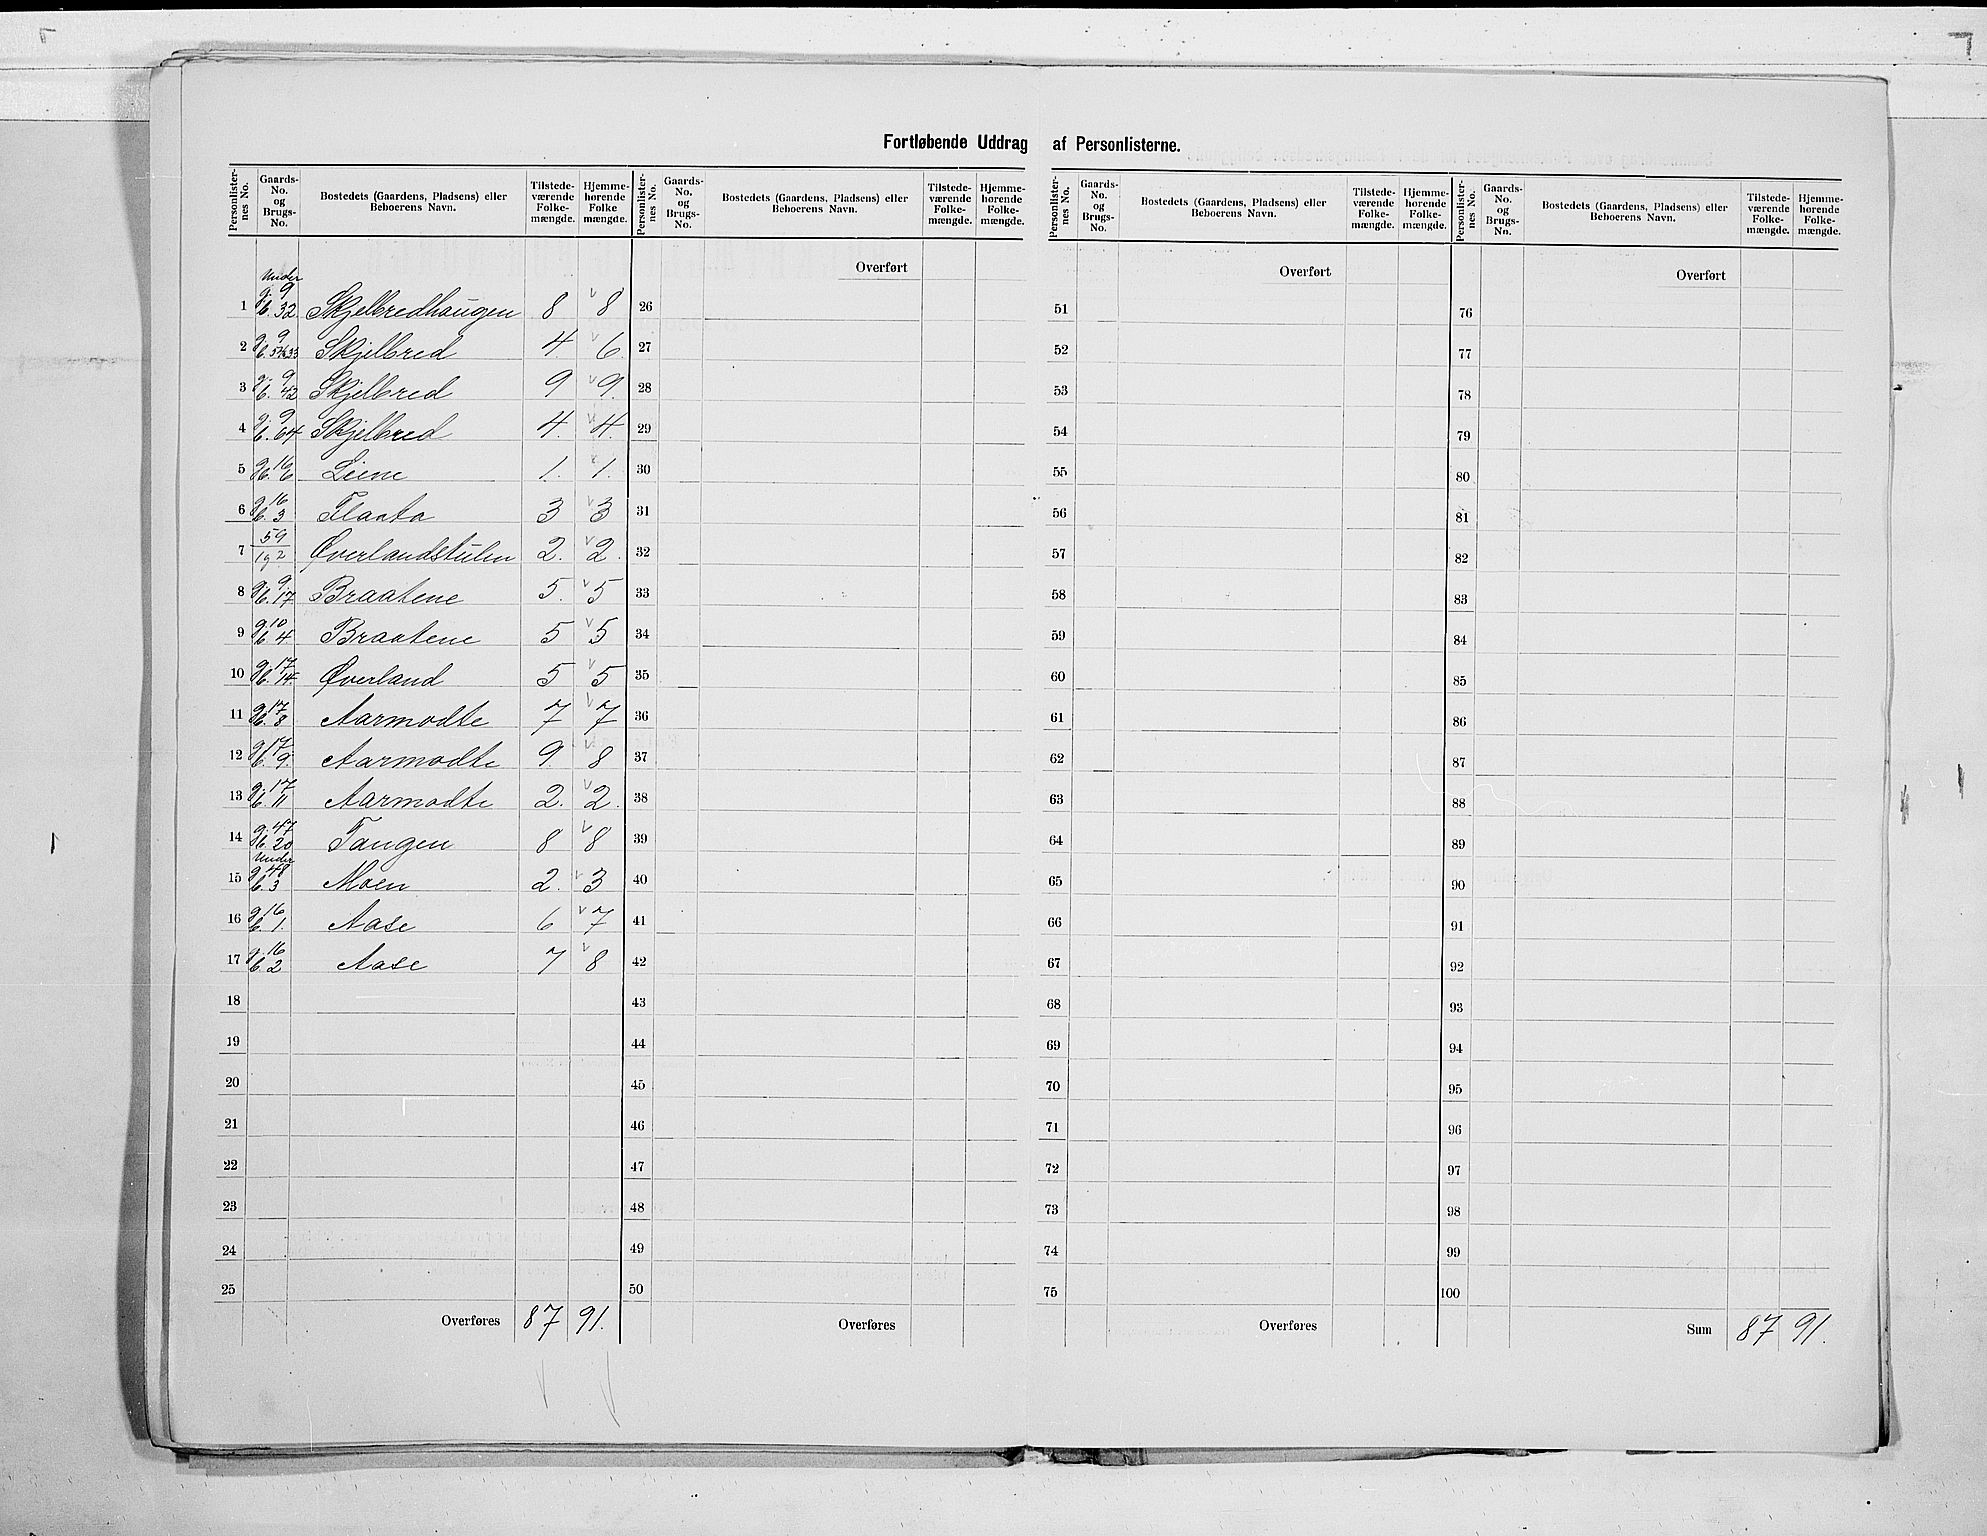 Fortløbende Uddrag af Personlisterne.
Personlisternes No. | Gaards-No. og Brugs-No. | Bostedets (Gaardens, Pladsens) eller Beboerens Navn. | Tilstedeværende Folkemængde. | Hjemmehørende Folkemængde. | Personlisternes No. | Gaards-No. og Brugs-No. | Bostedets (Gaardens, Pladsens) eller Beboerens Navn. | Tilstedeværende Folkemængde. | Hjemmehørende Folkemængde. | Personlisternes No. | Gaards-No. og Brugs-No. | Bostedets (Gaardens, Pladsens) eller Beboerens Navn. | Tilstedeværende Folkemængde. | Hjemmehørende Folkemængde. | Personlisternes No. | Gaards-No. og Brugs-No. | Bostedets (Gaardens, Pladsens) eller Beboerens Navn. | Tilstedeværende Folkemængde. | Hjemmehørende Folkemængde.
Overført Overført Overført
1 Under g. 9 b. 32 Skjelbredhaugen 8 8 26 51 76
2 g. 9 Skjelbred 4. 6. 27 52 77
3 g. 9 b. 42 Skjelbred 9 9. 28 53 78
4 g. 9 b. 64 Skjelbred 4. 4. 29 54 79
5 g. 16 b. 6 Liene 1. 1. 30 55 80
6 g. 16 b. 3 Flaata 3 3 31 56 81
7 59 1 og 2 Øverlandstulen 2. 2. 32 57 82
8 g. 9. b. 17 Braatene 5. 5 33 58 83
9 g. 10 b. 4 Braatene 5 5 34 59 84
10 g. 17 b. 14. Øverland 5 5 35 60 85
11 g. 17 b. 8 Aarmodte 7 7 36 61 86
12 g. 17 b. 9. Aarmodte 9. 8 37 62 87
13 g. 17 b. 11 Aarmodte 2. 2. 38 63 88
14 g. 47 b. 20 Tangen 8 8 39 64 89
15 Under g. 48 b. 3 Moen 2. 3 40 65 90
16 g. 16 b. 1. Aase 6 7 41 66 91
17 g. 16 b. 2 Aase 7 8 42 67 92
18 43 68 93
19 44 69 94
20 45 70 95
21 46 71 96
22 47 72 97
23 48 73 98
24 49 74 99
25 50 75 100
Overføres 87 91. Overføres Overføres Sum 87 91.